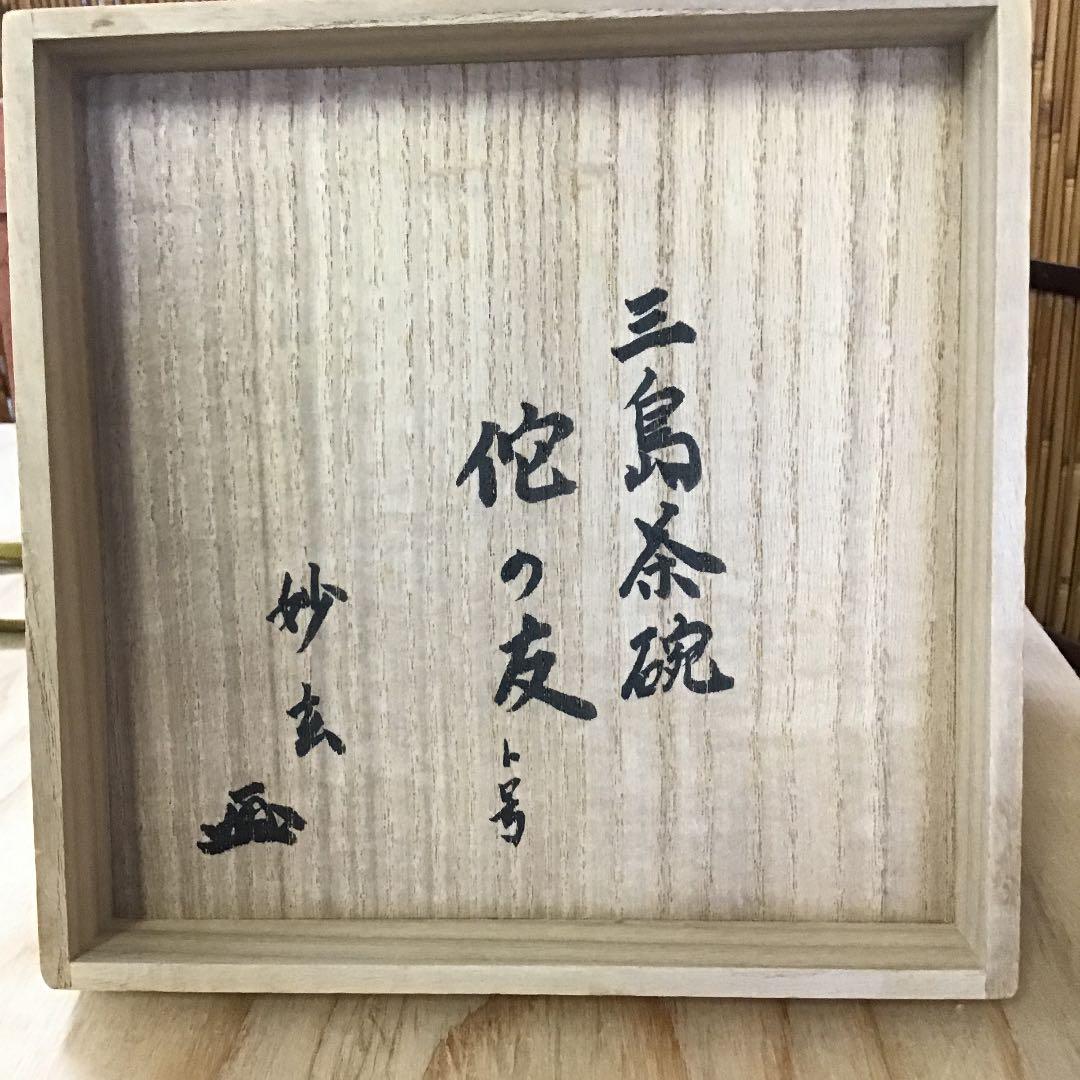 三島茶碗
佗の友
ト号
妙玄